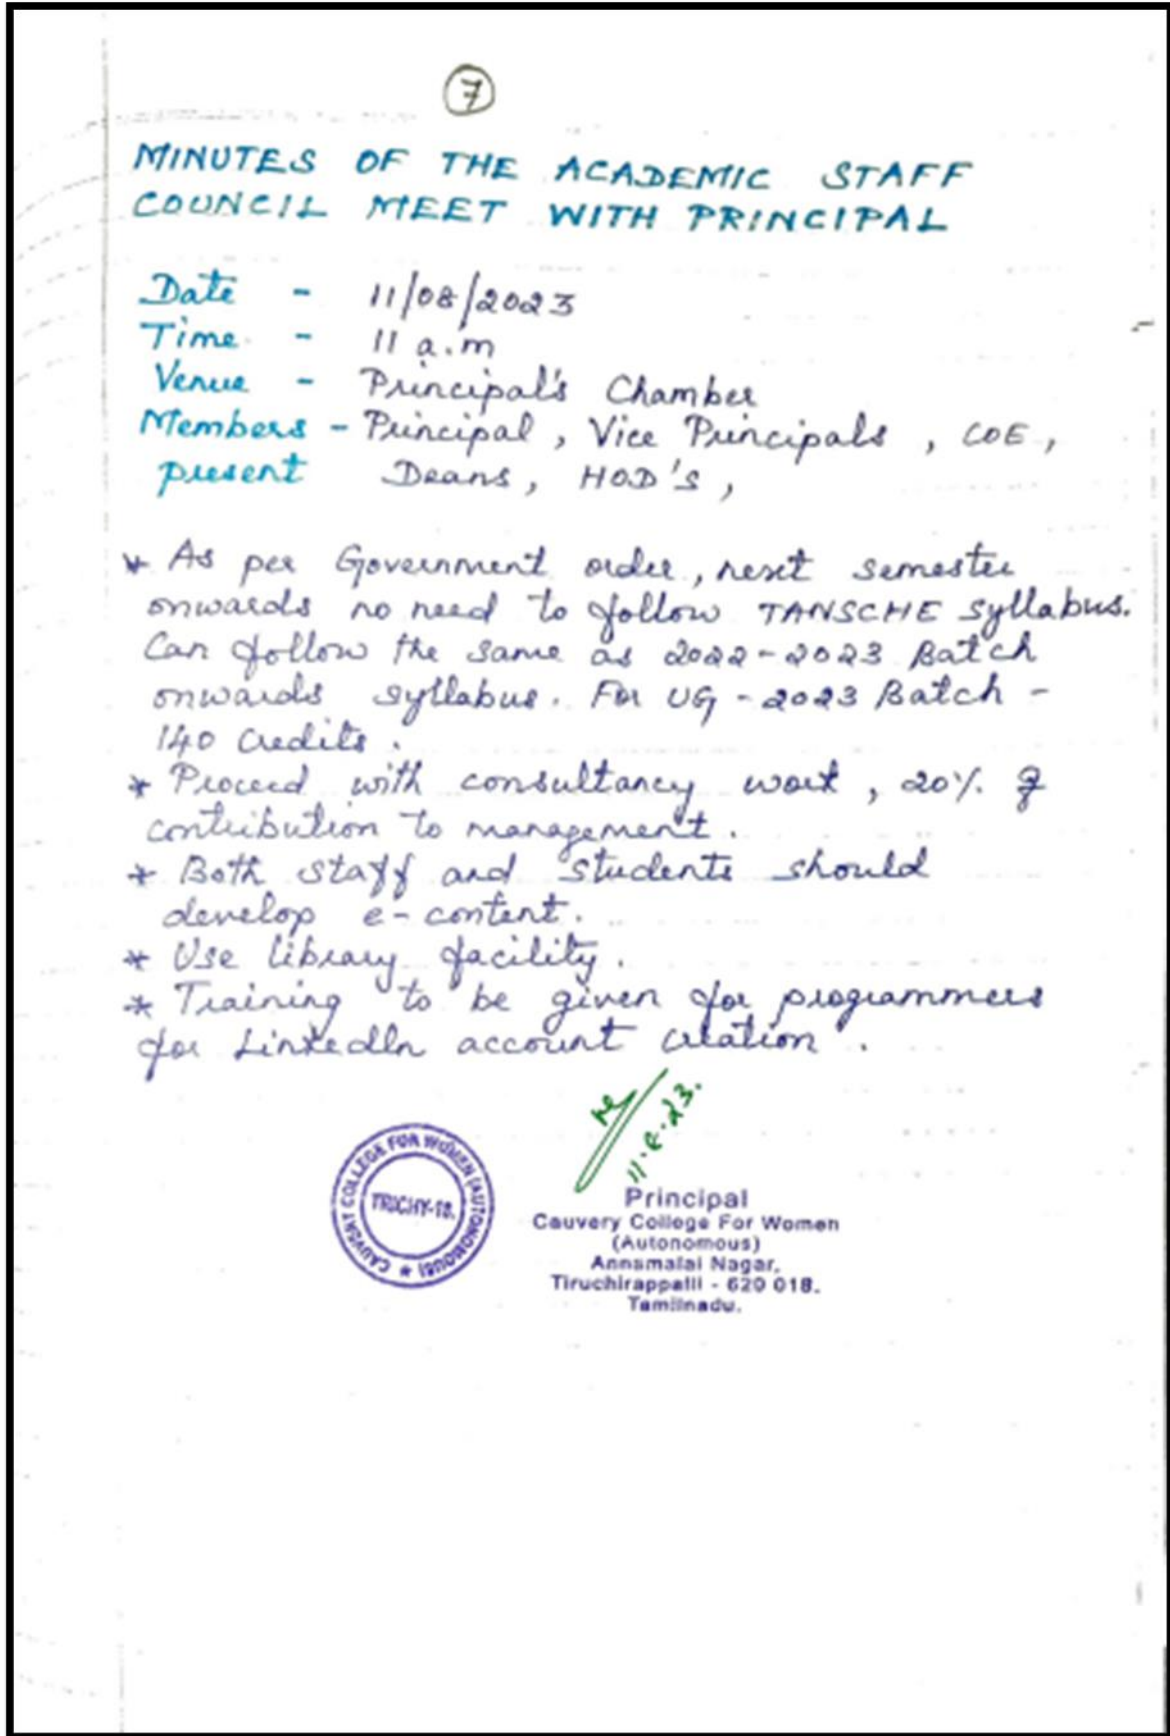 7
MINUTES OF THE ACADEMIC STAFF
COUNCIL MEET WITH PRINCIPAL
Date - 11/08/2023
Time - 11 a.m
Venue - Principal's Chamber
Members - Principal, Vice Principals, COE,
present Deans, HOD's,
* As per Government order, next semester
onwards no need to follow TANSCHE syllabus.
Can follow the same as 2022-2023 Batch
onwards syllabus. For UG - 2023 Batch -
140 credits.
* Proceed with consultancy work, 20% of
contribution to management.
* Both staff and students should
develop e-content.
* Use library facility.
* Training to be given for programmers
for LinkedIn account creation.
11.8.23.
CAUVERY COLLEGE FOR WOMEN (AUTONOMOUS) ★
TRICHY-18.
Principal
Cauvery College For Women
(Autonomous)
Annamalai Nagar,
Tiruchirappalli - 620 018.
Tamilnadu.